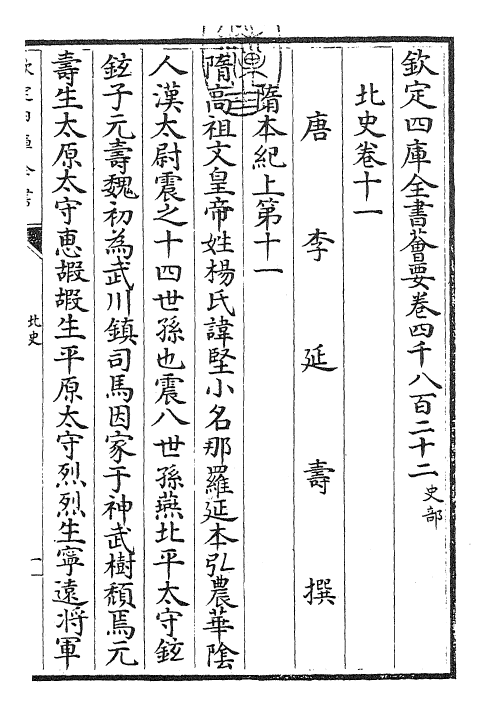 欽定四庫全書薈要卷四千八百二十二史部
北史卷十一
唐李延壽撰
隋本紀上第十一
隋高祖文皇帝姓楊氏諱堅小名那羅延本弘農華陰
人漢太尉震之十四世孫也震八世孫燕北平太守鉉
鉉子元壽魏初為武川鎮司馬因家于神武樹頹焉元
壽生太原太守惠嘏嘏生平原太守烈烈生寧遠將軍
北史